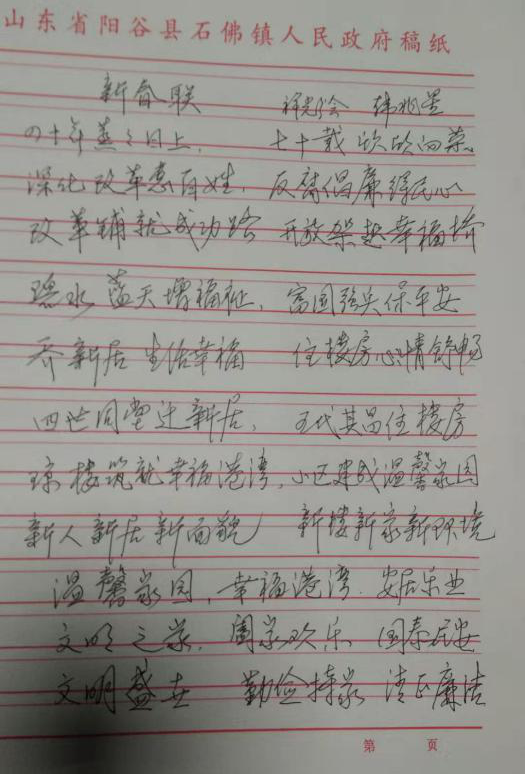 山东省阳谷县石佛镇人民政府稿纸
新春联 韩兆星
四十年蒸蒸日上, 七十载欣欣向荣。
深化改革惠百姓, 反腐倡廉得民心
改革铺就成功路 开放架起幸福桥
绿水蓝天增福祉, 富国强兵保平安
乔新居生活幸福 住楼房心情舒畅
四世同堂迁新居, 五代其昌住楼房
琼楼筑就幸福港湾, 小区建成温馨家园
新人新居新面貌 新楼新家新环境
温馨家园, 幸福港湾. 安居乐业
文明之家, 阖家欢乐 国泰民安
文明盛世 勤俭持家 清正廉洁
第 页